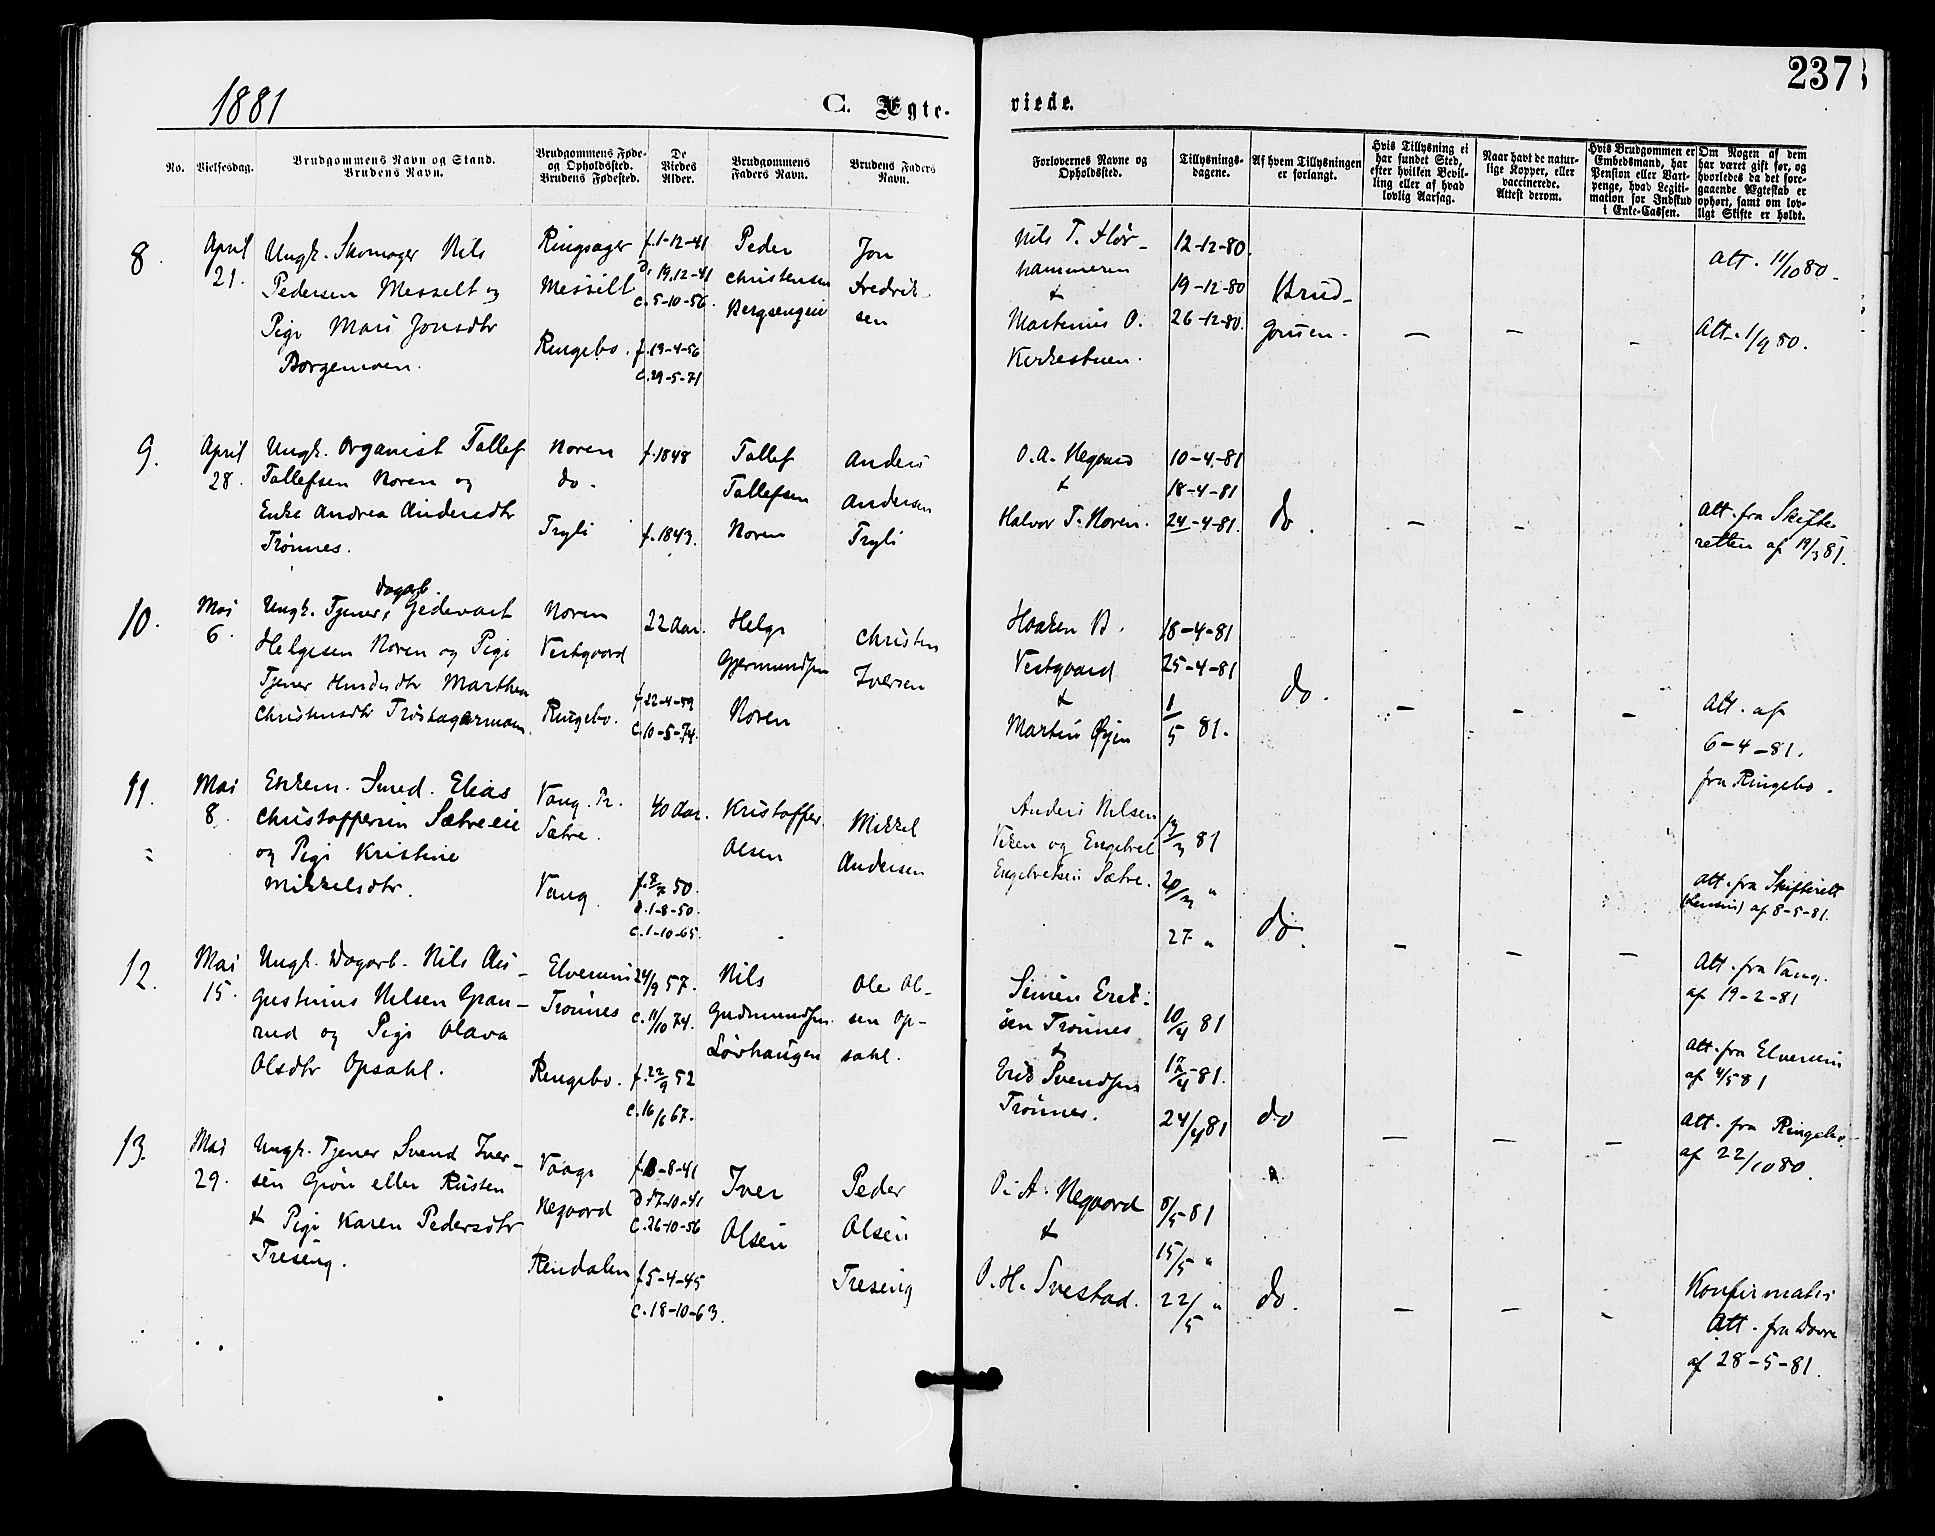 1881
C. Ægte-
viede.
237
No.
Vielsesdag.
Brudgommens Navn og Stand.
Brudens Navn.
Brudgommens Føde-
og Opholdssted.
Brudens Fødested.
De
Viedes
Alder.
Brudgommens
Faders Navn.
Brudens Faders
Navn.
Forlovernes Navne og
Opholdssted.
Tillysnings-
dagene.
Af hvem Tillysningen
er forlangt.
Hvis Tillysning ei
har fundet Sted,
efter hvilken Bevil-
ling eller af hvad
lovlig Aarsag.
Naar havt de natur-
lige Kopper, eller
vaccinerede.
Attest derom.
Hvis Brudgommen er
Embedsmand, har
Pension eller Vart-
penge, hvad Legiti-
mation for Indskud
i Enke-Cassen.
Om Nogen af dem
har været gift før, og
hvorledes da det fore-
gaaende Ægteskab er
ophørt, samt om lov-
ligt Skifte er holdt.
8.
April
21.
Ungk. Skomager Nils
Pedersen Messelt og
Pige Mari Jonsdtr
Borgemoen.
Ringsager
Messelt
Ringebo.
f. 1-12-41
D. 19.12-41
C. 5-10-56.
f. 19-4-56
C. 29-5-71
Peder
Christensen
Bergsengeie
Jon
Fredrik-
sen
Nils T. Flør-
hammeren
&
Martinus O.
Kirkestuen.
12-12-80.
19-12-80
26-12-80.
Brud-
gomen.
Att. 11/10 80.
Att. 1/9 80.
9.
April
28.
Ungk. Organist Tollef
Tollefsen Noren og
Enke Andrea Andersdtr
Trønnes.
Noren
do.
Tryli
f. 1848
f. 1843.
Tollef
Tollefsen
Noren
Anders
Andersen
Tryli
O. A. Negaard
&
Halvor T. Noren.
10-4-81
18-4-81
24-4-81.
do.
Att. fra Skifte-
retten af 19/3 81.
10.
Mai
6.
Dagarb.
Ungk. Tjener, Gedevart
Helgesen Noren og Pige
Tjener Marthea
Christensdtr
Noren
Vestgaard
Ringebo.
22 Aar.
f. 22-4-59
C. 10-5-74.
Helge
Gjermundsen
Noren
Christen
Iversen
Haaken B.
Vestgaard
&
Martin Øyen
18-4-81
25-4-81
1/5 81.
do.
Att. af
6-4-81.
fra Ringebo.
11.
Mai
8.
Enkem. Smed. Elias
Christoffersen Sætreeie
og Pige Kristine
Mikkelsdtr.
Vang. Pr.
Sætre.
Vang
40 Aar.
f. 8/7 50.
D. 1-8-50.
C. 1-10-65.
Kristoffer
Olsen
Mikkel
Andersen
Anders Nilsen
Viken og Engebret
Engebretsen Sætre.
13/3 81
20/3 "
27 "
do.
Att. fra Skifterett
af 8-5-81.
Att. fra Vang.
af 19-2-81
12.
Mai
15.
Ungk. Dagarb. Nils Au-
gustinus Nilsen Gran-
rud og Pige Olava
Olsdtr Opsahl.
Elverum
Trønnes
Ringebo.
24/9 57.
C. 11/10 74.
f. 22/9 52
C. 16/6 67.
Nils
Gudmundsen
Løvhaugen
Ole Ol-
sen Op-
sahl.
Simen Erik-
sen Trønnes
&
Erik Svendsen
Trønnes.
10/4 81
17/4-81.
24/4 81
do
Att. fra Elverum
af 4/5 81
Att. fra Ringebo
af 22/10 80.
13.
Mai
29.
Ungk. Tjener Svend Iver-
sen Grøn eller Rusten
& Pige Karen Pedersdtr
Treseng.
Vaage
Negaard
Rendalen
f. 13-8-41
D 17-10-41
C. 26-10-56
f. 5-4-45
C. 18-10-63.
Iver
Olsen
Peder
Olsen
Treseng
P. A. Negaard
&
O. H. Svestad.
8/5-81
15/5 "
22/5 "
do.
Konfirmatio
Att. fra Dovre
af 28-5-81.